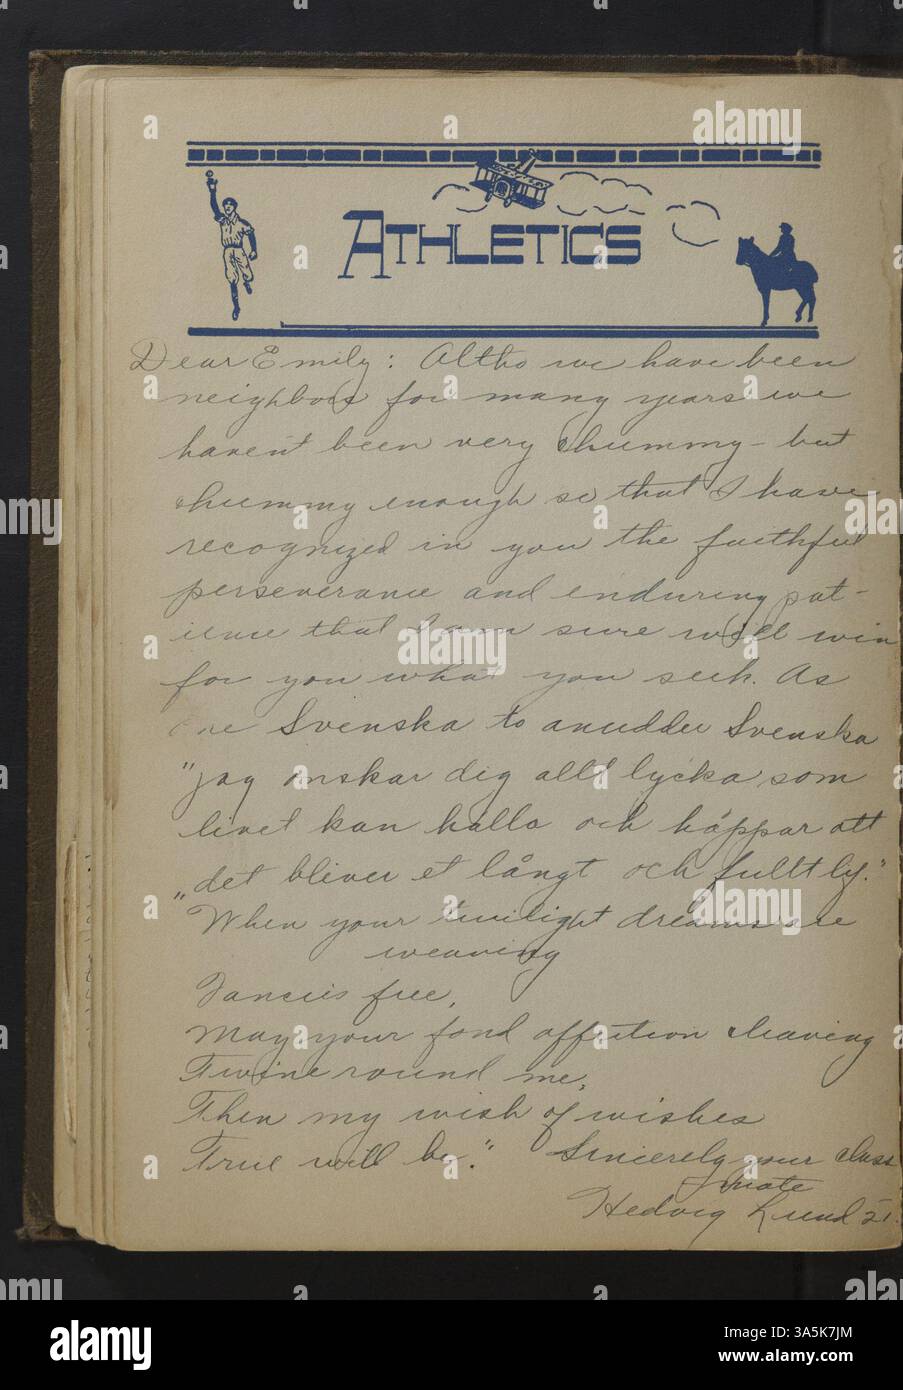 ATHLETICS
Dear Emily: Altho we have been
neighbors for many years we
haven't been very chummy - but
chummy enough so that I have
recognized in you the faithful
perseverance and enduring pat-
ience that I am sure will win
for you what you seek. As
one Svenska to anudder Svenska
"jag onskar dig allt lycka som
livet kan halla och håppar att
"det bliver et långt och fulltlig."
When your twilight dreams are
weaving
Fancies free,
May your fond affection cleaving
Twine round me,
Then my wish of wishes
True will be." Sincerely your class
mate
Hedvig Lund 21.
alamy
Image ID: 3A5K7JM
www.alamy.com